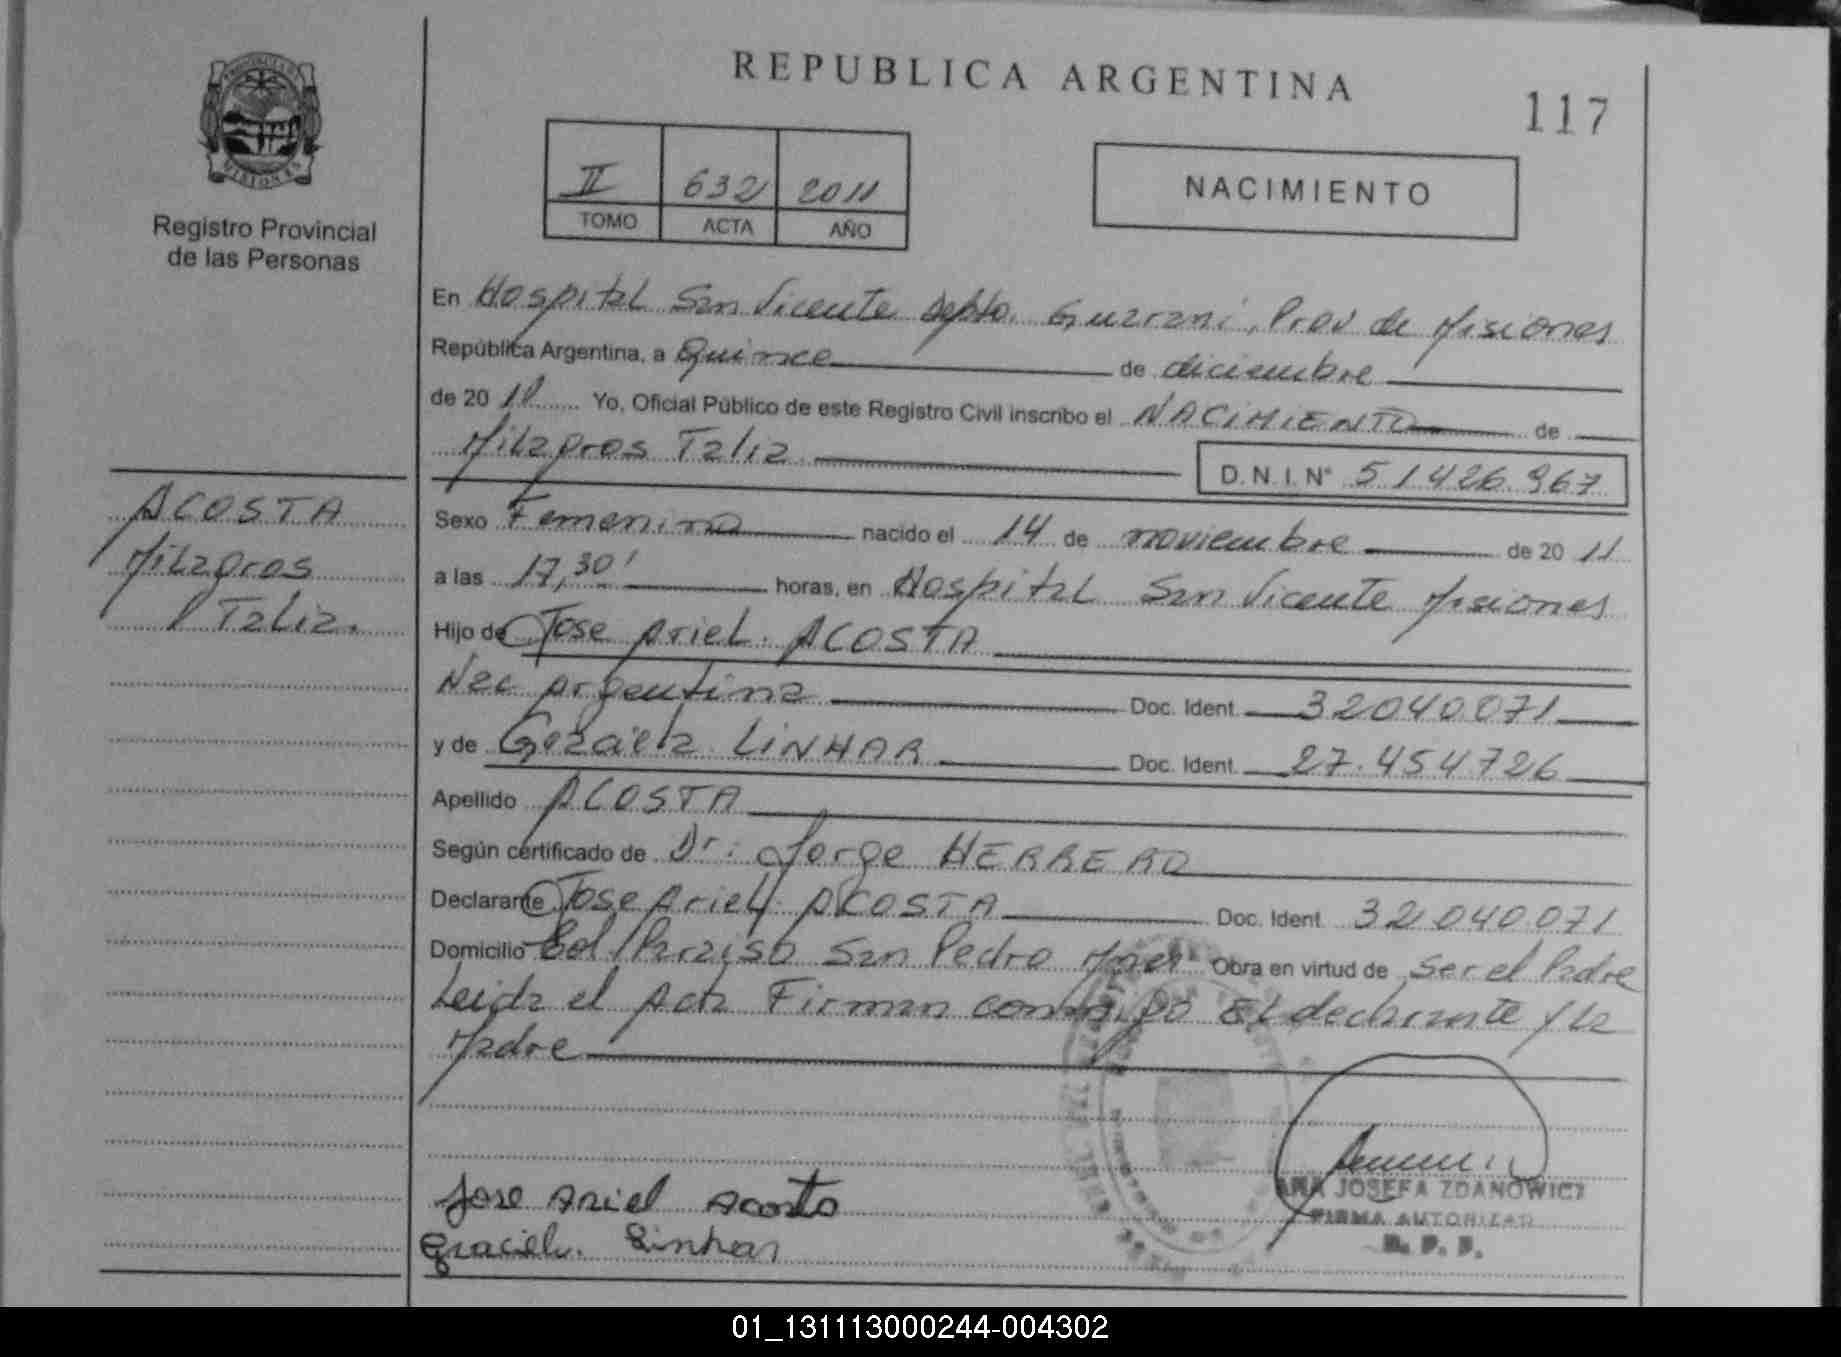 REPUBLICA ARGENTINA
117
PROVINCIA DE
MISIONES
Registro Provincial
de las Personas
II 632 2011
TOMO ACTA AÑO
NACIMIENTO
En Hospital San Vicente Depto. Guarani, Prov de Misiones
República Argentina, a Quince de diciembre
de 20 11 Yo, Oficial Público de este Registro Civil inscribo el NACIMIENTO de
Milagros Taliz
D.N.I. N° 51426967
ACOSTA
Milagros
Taliz.
Sexo Femenino nacido el 14 de noviembre de 20 11
a las 17,30' horas, en Hospital San Vicente Misiones
Hijo de Jose Ariel ACOSTA
Nac argentina Doc. Ident. 32040071
y de Graciela LINHAR Doc. Ident. 27.454726
Apellido ACOSTA
Según certificado de Dr: Jorge HERRERO
Declarante Jose Ariel ACOSTA Doc. Ident. 32040071
Domicilio Paraiso San Pedro Mnes Obra en virtud de Ser el Padre
Leida el Acta Firman conmigo El declarante y la
Madre
Jose Ariel Acosta
Graciela Linhar
ANA JOSEFA ZDANOWICZ
FIRMA AUTORIZAD
R. P. P.
01_131113000244-004302